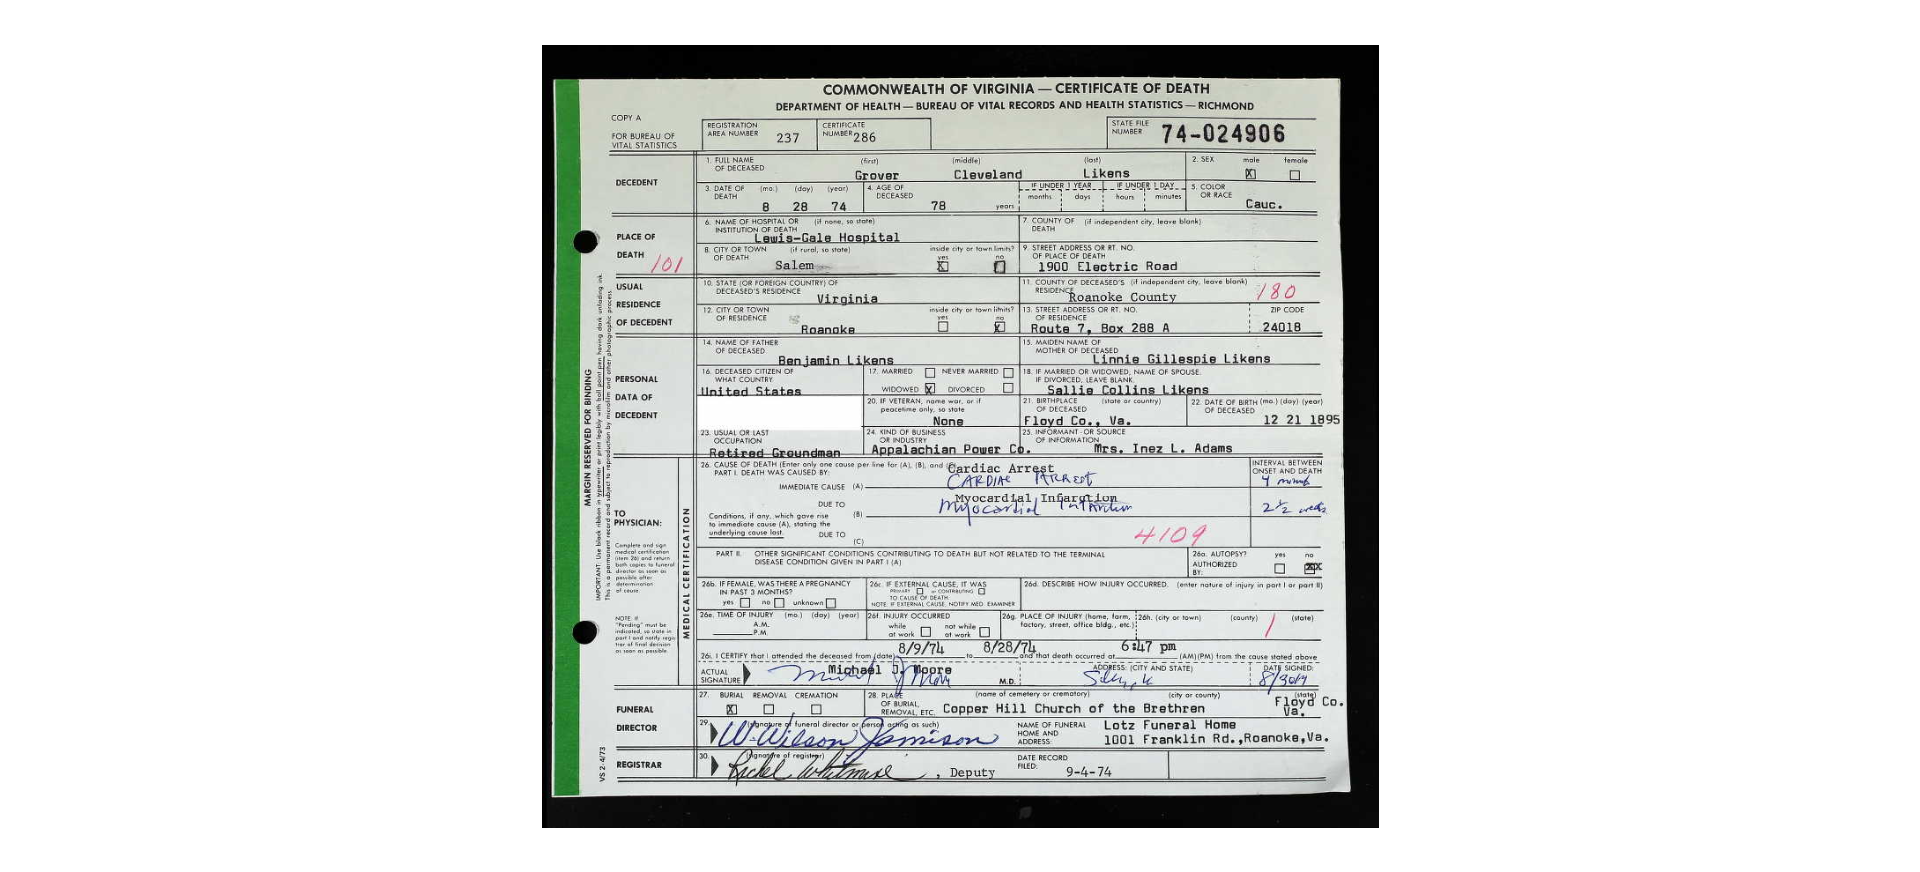 COMMONWEALTH OF VIRGINIA — CERTIFICATE OF DEATH
DEPARTMENT OF HEALTH — BUREAU OF VITAL RECORDS AND HEALTH STATISTICS — RICHMOND
COPY A
FOR BUREAU OF VITAL STATISTICS
REGISTRATION AREA NUMBER 237
CERTIFICATE NUMBER 286
STATE FILE NUMBER 74-024906
DECEDENT
1. FULL NAME OF DECEASED (first) (middle) (last)
Grover Cleveland Likens
2. SEX male female
X
3. DATE OF DEATH (mo.) (day) (year)
8 28 74
4. AGE OF DECEASED
78 years
IF UNDER 1 YEAR months days
IF UNDER 1 DAY hours minutes
5. COLOR OR RACE
Cauc.
PLACE OF DEATH
101
6. NAME OF HOSPITAL OR INSTITUTION OF DEATH (if none, so state)
Lewis-Gale Hospital
7. COUNTY OF DEATH (if independent city, leave blank)
8. CITY OR TOWN OF DEATH (if rural, so state)
Salem
inside city or town limits? yes no
X
9. STREET ADDRESS OR RT. NO. OF PLACE OF DEATH
1900 Electric Road
USUAL RESIDENCE OF DECEDENT
10. STATE (OR FOREIGN COUNTRY) OF DECEASED'S RESIDENCE
Virginia
11. COUNTY OF DECEASED'S RESIDENCE (if independent city, leave blank)
Roanoke County
180
12. CITY OR TOWN OF RESIDENCE
Roanoke
inside city or town limits? yes no
X
13. STREET ADDRESS OR RT. NO. OF RESIDENCE
Route 7, Box 288 A
ZIP CODE
24018
PERSONAL DATA OF DECEDENT
14. NAME OF FATHER OF DECEASED
Benjamin Likens
15. MAIDEN NAME OF MOTHER OF DECEASED
Linnie Gillespie Likens
16. DECEASED CITIZEN OF WHAT COUNTRY
United States
17. MARRIED NEVER MARRIED
WIDOWED X DIVORCED
18. IF MARRIED OR WIDOWED, NAME OF SPOUSE. IF DIVORCED, LEAVE BLANK.
Sallie Collins Likens
20. IF VETERAN, name war, or if peacetime only, so state
None
21. BIRTHPLACE OF DECEASED (state or country)
Floyd Co., Va.
22. DATE OF BIRTH OF DECEASED (mo.) (day) (year)
12 21 1895
23. USUAL OR LAST OCCUPATION
Retired Groundman
24. KIND OF BUSINESS OR INDUSTRY
Appalachian Power Co.
25. INFORMANT - OR SOURCE OF INFORMATION
Mrs. Inez L. Adams
MARGIN RESERVED FOR BINDING
IMPORTANT: Use black ribbon in typewriter or print legibly with ball point pen having dark unfading ink.
This is a permanent record and subject to reproduction by microfilm and other photographic process.
VS 2-4/73
MEDICAL CERTIFICATION
TO PHYSICIAN:
Complete and sign medical certification (item 26) and return both copies to funeral director as soon as possible after determination of cause.
NOTE: If "Pending" must be indicated, so state in part I and notify registrar of final decision as soon as possible.
26. CAUSE OF DEATH (Enter only one cause per line for (A), (B), and (C)
PART I. DEATH WAS CAUSED BY:
INTERVAL BETWEEN ONSET AND DEATH
Cardiac Arrest
IMMEDIATE CAUSE (A) CARDIAC ARREST
Myocardial Infarction
DUE TO (B) Myocardial Infarction
2½ weeks
Conditions, if any, which gave rise to immediate cause (A), stating the underlying cause last.
DUE TO (C)
4109
PART II. OTHER SIGNIFICANT CONDITIONS CONTRIBUTING TO DEATH BUT NOT RELATED TO THE TERMINAL DISEASE CONDITION GIVEN IN PART I (A)
26a. AUTOPSY? yes no
AUTHORIZED BY:
26b. IF FEMALE, WAS THERE A PREGNANCY IN PAST 3 MONTHS?
yes no unknown
26c. IF EXTERNAL CAUSE, IT WAS
PRIMARY or CONTRIBUTING
TO CAUSE OF DEATH
NOTE: IF EXTERNAL CAUSE, NOTIFY MED. EXAMINER
26d. DESCRIBE HOW INJURY OCCURRED. (enter nature of injury in part I or part II)
26e. TIME OF INJURY (mo.) (day) (year)
A.M.
P.M.
26f. INJURY OCCURRED
while at work not while at work
26g. PLACE OF INJURY (home, farm, factory, street, office bldg., etc.)
26h. (city or town) (county) (state)
1
26i. I CERTIFY that I attended the deceased from (date) 8/9/74 to 8/28/74 and that death occurred at 6:47 pm (AM)(PM) from the cause stated above
ACTUAL SIGNATURE
Michael J. Moore
M.D.
ADDRESS: (CITY AND STATE)
DATE SIGNED:
FUNERAL DIRECTOR
27. BURIAL REMOVAL CREMATION
X
28. PLACE OF BURIAL, REMOVAL, ETC. (name of cemetery or crematory) (city or county) (state)
Copper Hill Church of the Brethren
Floyd Co. Va.
29. (signature of funeral director or person acting as such)
W. Wilson Jamison
NAME OF FUNERAL HOME AND ADDRESS:
Lotz Funeral Home
1001 Franklin Rd.,Roanoke,Va.
REGISTRAR
30. (signature of registrar)
, Deputy
DATE RECORD FILED:
9-4-74